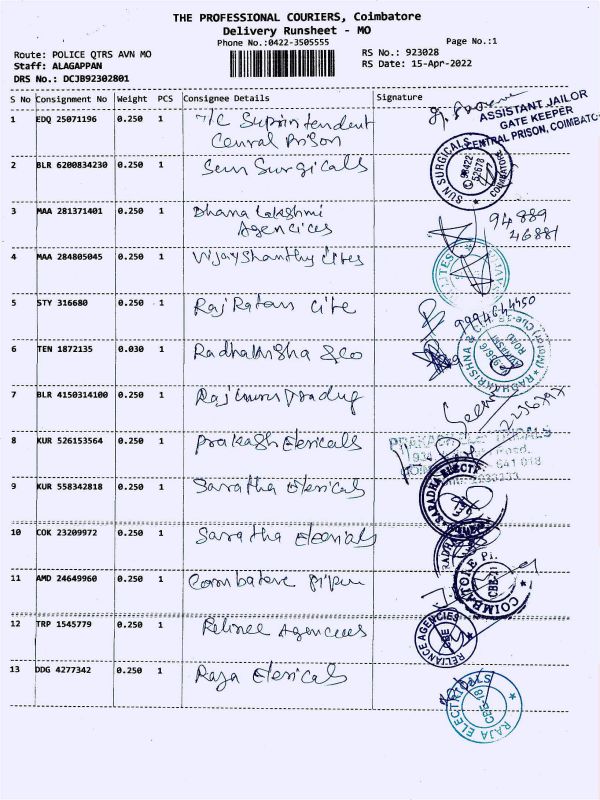 THE PROFESSIONAL COURIERS, Coimbatore
Delivery Runsheet - MO
Phone No.:0422-3505555
Page No.:1
Route: POLICE QTRS AVN MO
RS No.: 923028
Staff: ALAGAPPAN
RS Date: 15-Apr-2022
DRS No.: DCJB92302801
S No Consignment No Weight PCS Consignee Details Signature
ASSISTANT JAILOR
GATE KEEPER
CENTRAL PRISON, COIMBATO
1 EDQ 25071196 0.250 1 Suprintendent
Cenral Prison
2 BLR 6200834230 0.250 1 Sun Surgicals
SUN SURGICALS
3 MAA 281371401 0.250 1 Dhana Lakshmi
Agencices
94889
46881
4 MAA 284805045 0.250 1 Vijayshanthy Cites
5 STY 316680 0.250 1 Raj Ratan Cite
6 TEN 1872135 0.030 1 Radhakrisha & co
RADHAKRISHNA &
7 BLR 4150314100 0.250 1
8 KUR 526153564 0.250 1 Prakash Elericals
641 018
9 KUR 558342818 0.250 1 Saratha Elericals
SARADHA ELECT
10 COK 23209972 0.250 1 Saratha
11 AMD 24649960 0.250 1
COIMBATORE
12 TRP 1545779 0.250 1 Agencies
RELIANCE AGENCIES
CBE
13 DDG 4277342 0.250 1 Raja Elericals
RAJA ELECTRICALS
CBE-18